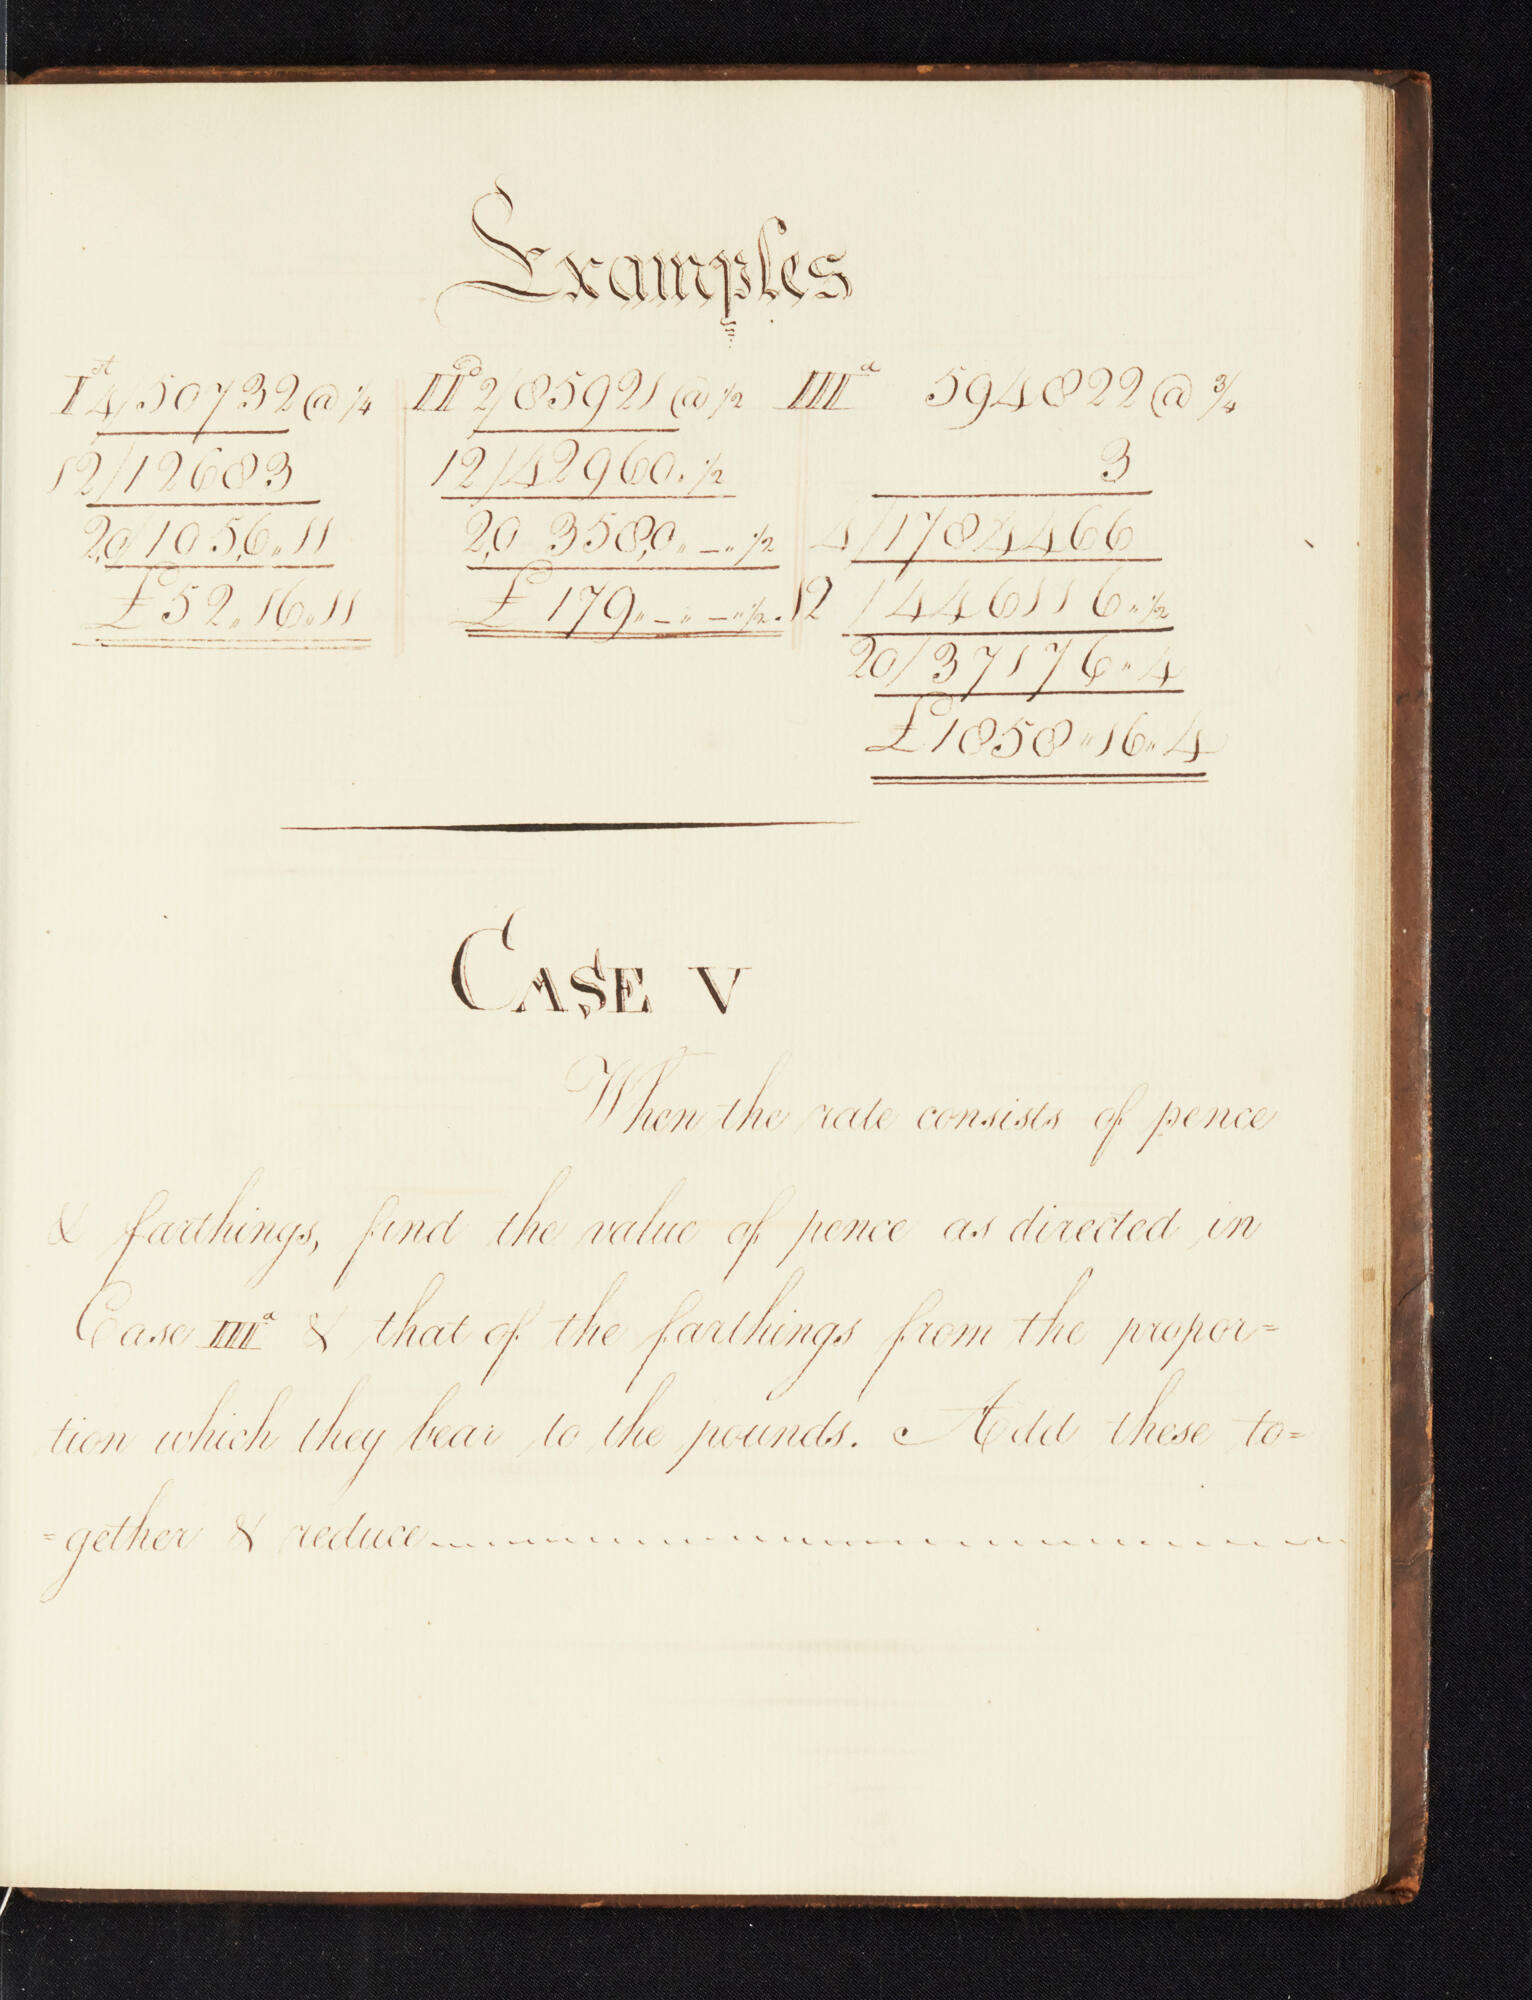 Examples
Ist 4/50732 @ 1/4
12/12683
2,0/105,6 „ 11
£52 „ 16 „ 11
IId 2/85921 @ 1/2
12/42960 . 1/2
2,0 358,0 „ – „ 1/2
£179 „ – „ – „ 1/2 .
IIId 594822 @ 3/4
3
4/1784466
12/446116 „ 1/2
20/37176 „ 4
£1858 „ 16 „ 4
CASE V
When the rate consists of pence
& farthings, find the value of pence as directed in
Case IIId & that of the farthings from the propor=
tion which they bear to the pounds. Add these to=
=gether & reduce